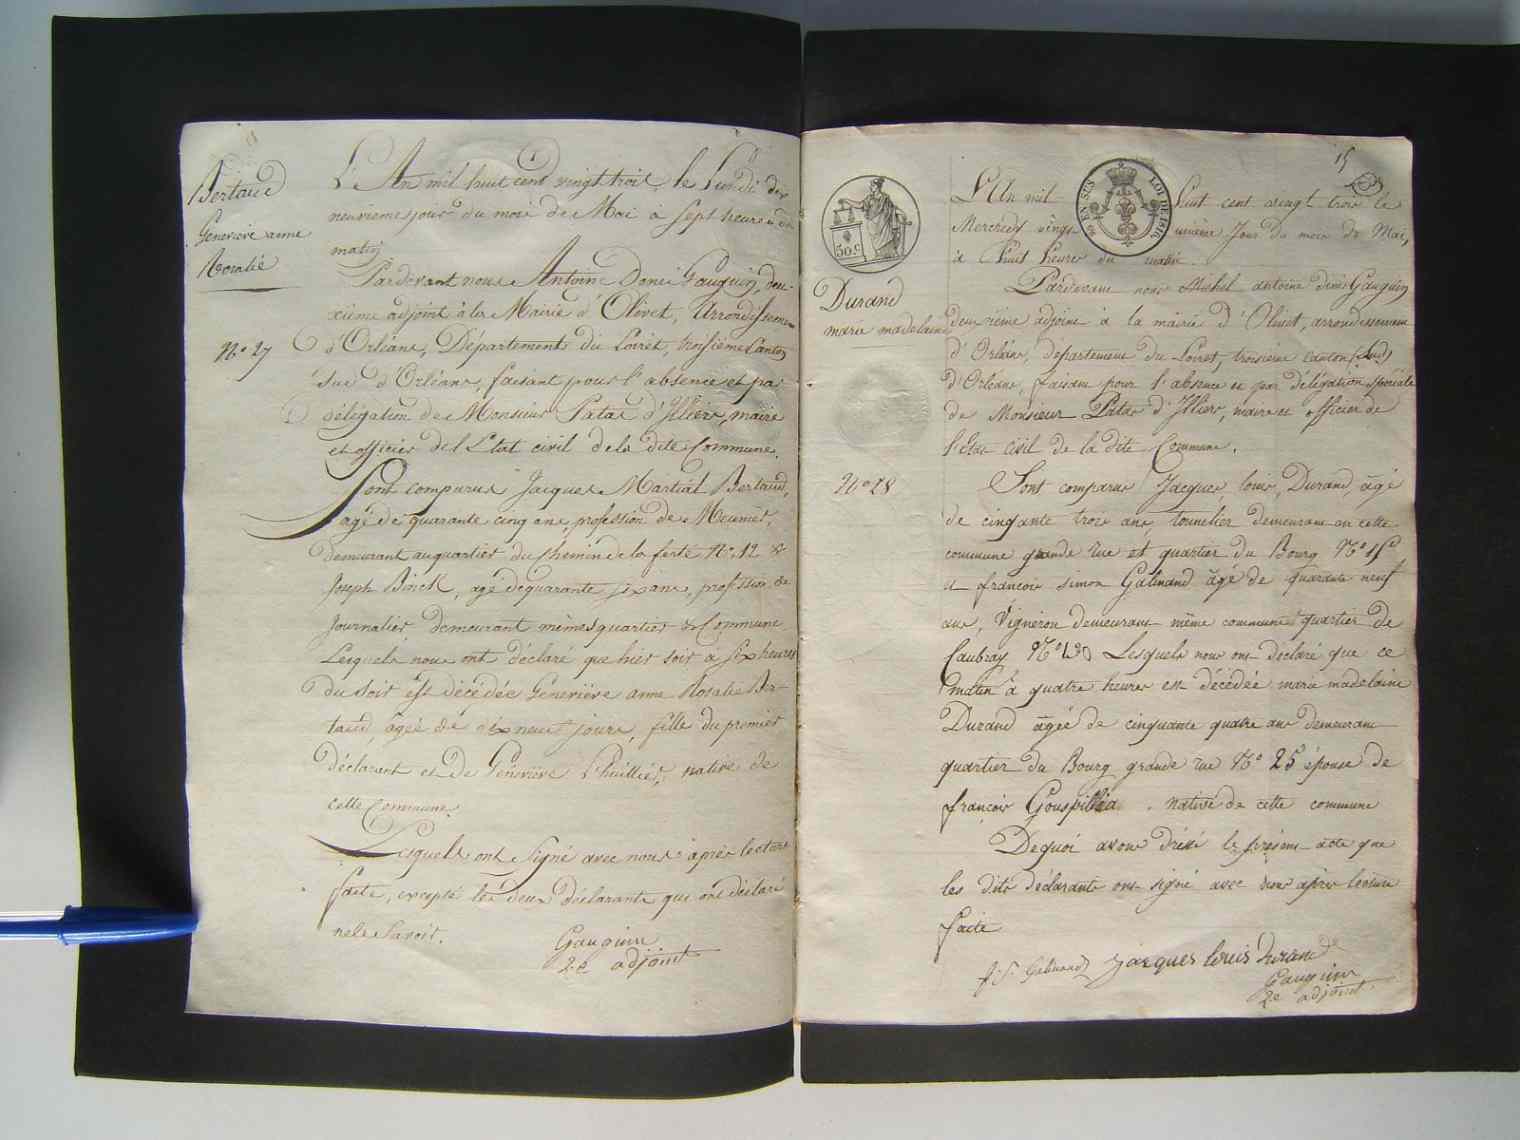 Bertaud
Geneviève anne
Rosalie
N.º 27
L'An mil huit cent vingt trois le Lundi dix
neuvieme jour du mois de Mai a sept heures du
matin
Pardevant nous Antoine Denis Gauguin, deu-
xième adjoint à la Mairie d'Olivet, Arrondissement
d'Orléans, Département du Loiret, troisième Canton
Sud d'Orléans, faisant pour l'absence et par
délégation de Monsieur Patas d'Illiers, maire
et officier de l'Etat civil de la dite Commune.
Sont comparus Jacques Martial Bertaud,
agé de quarante cinq ans, profession de Meunier,
demeurant au quartier du chemin de la ferté N.º 12 &
Joseph Binck, agé de quarante six ans, profession de
Journalier, demeurant mêmes quartier & Commune
Lesquels nous ont déclaré que hier soir à six heures
du soir est décédée Geneviève anne Rosalie Ber-
taud, agée de dix neuf jours, fille du premier
déclarant et de Geneviève Lhuillier, native de
cette Commune.
Lesquels ont signé avec nous après lecture
faite, excepté les deux déclarants qui ont déclaré
ne le Savoir.
Gauguin
2.e adjoint
15
50 c.
EN SUS
LOI DE 1816
Durand
marie madelaine
N.º 28
L'An mil huit cent vingt trois le
Mercredy vingt unième Jour du mois de Mai,
à huit heures du matin.
Pardevant nous Michel antoine denis Gauguin
deuxième adjoint à la mairie d'Olivet, arrondissement
d'Orléans, département du Loiret, troisième canton (Sud)
d'Orléans, faisant pour l'absence et par délégation spéciale
de Monsieur Patas d'Illiers, maire et officier de
l'Etat civil de la dite Commune.
Sont comparus Jacques, louis, Durand, âgé
de cinqante trois ans, tonnelier demeurant en cette
commune grande rue et quartier du Bourg N.º
et françois simon Galinand âgé de quarante neuf
ans, Vigneron demeurant même commune quartier de
Caubray N.º Lesquels nous ont déclaré que ce
matin à quatre heures est décédée marie madelaine
Durand âgée de cinquante quatre ans demeurant
quartier du Bourg grande rue N.º 25 épouse de
françois . native de cette commune
De quoi avons dréssé le présent acte que
les dits declarants ont signé avec nous après lecture
faite
f. s. Galinand jacques louis durand
Gauguin
2e adjoint